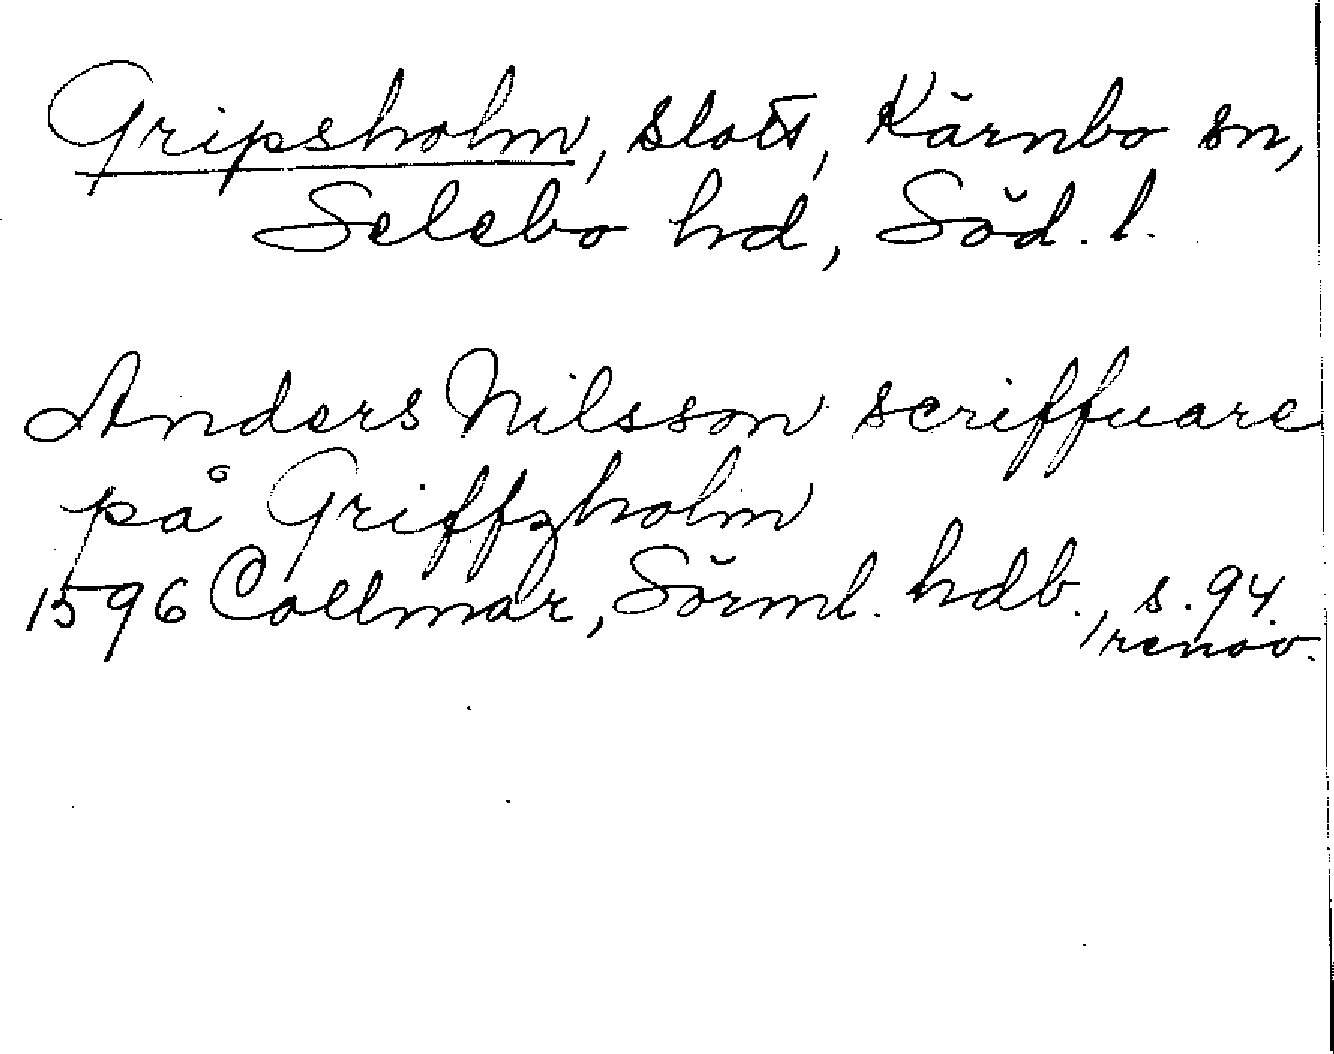 Gripsholm, slott, Kärnbo sn,
Selebo hd, Söd. l.
Anders Nilsson scriffuare
på Griffzholm
1596 Collmar, Sörml. hdb., s. 94.
/renov.